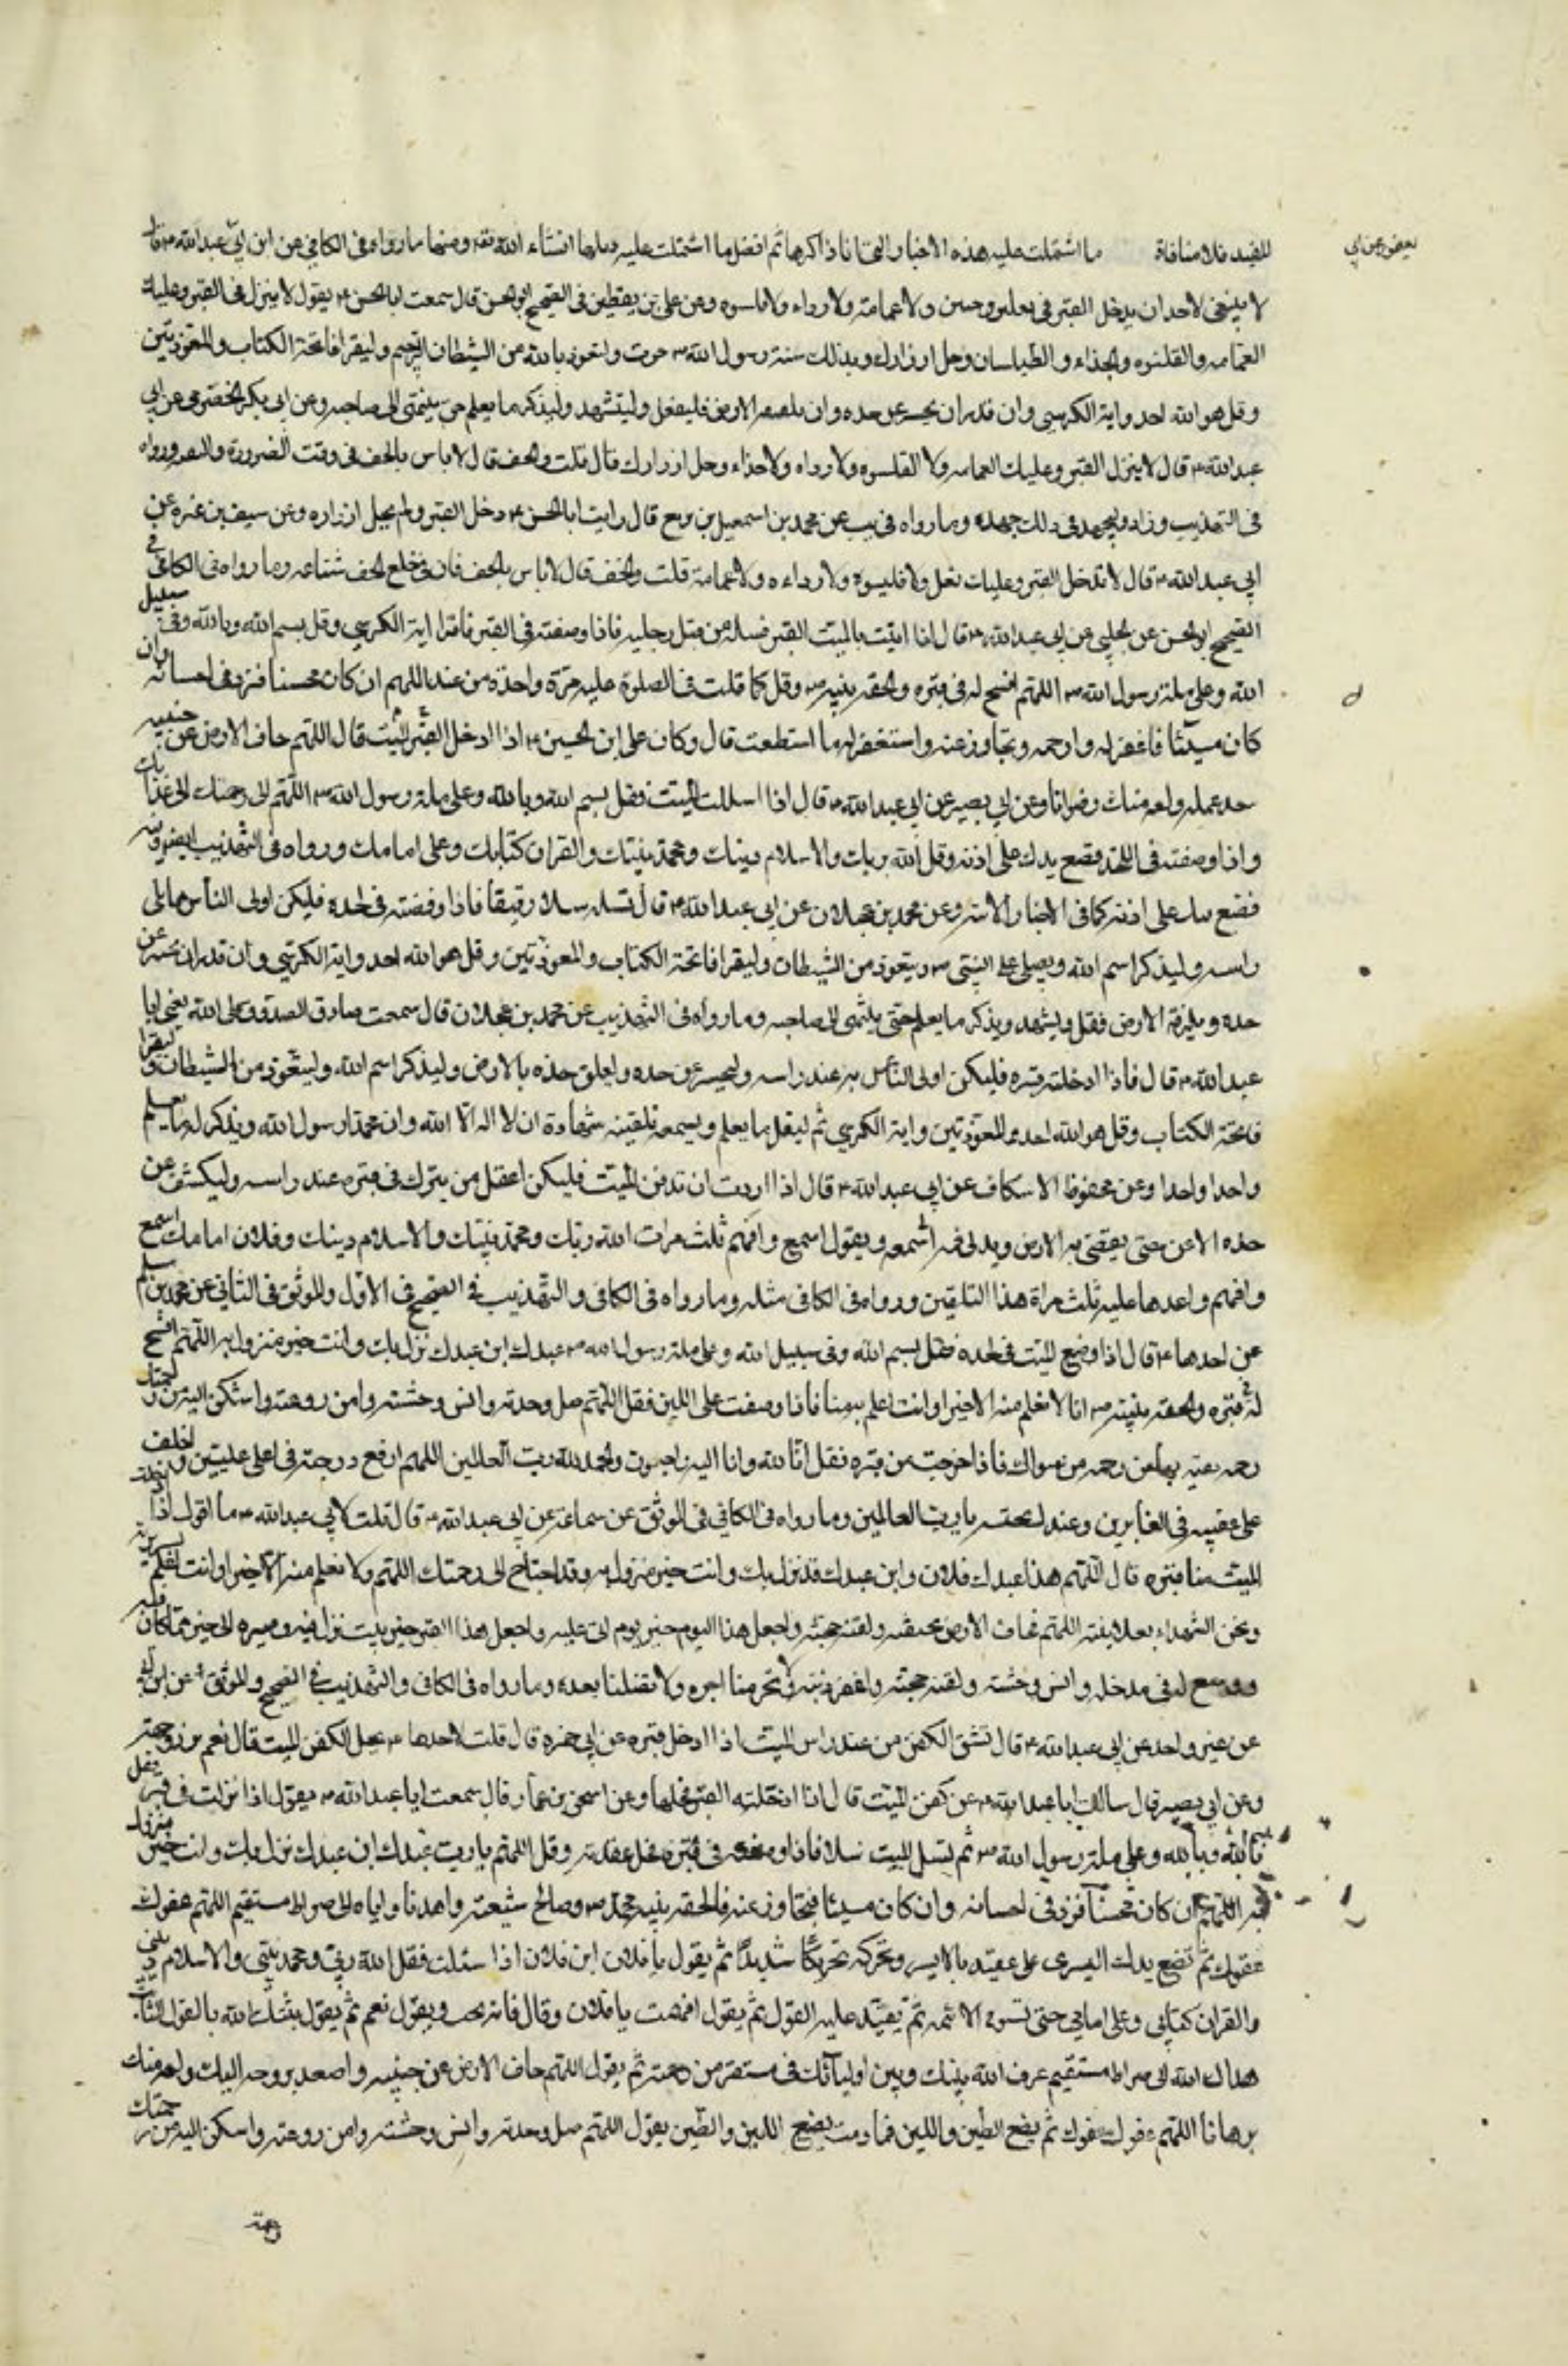 يعفور عن ابي
للقيد فلا منافاة ما اشتملت عليه هذه الاخبار والخا نا ذاكرها ثم افضل ما اشتملت عليه انشاء الله تعه ومنها ما رواه فى الكافي عن ابن ابي عبد الله ع قال
لا ينبغى لاحد ان يدخل القبر فى نعلين وخفين ولا عمامة ولا رداء ولا قلنسوه وعن على بن يقطين فى الصحيح ابو الحسن قال سمعت ابا الحسن ع يقول لا ينزل فى القبر وعليك
العمامه والقلنسوه والحذاء والطيلسان وحل ازرارك وبذلك سنة رسول الله ص جرت وليتعوذ بالله من الشيطان الرجيم وليقرا فاتحة الكتاب والمعوذتين
وقل هو الله احد واية الكرسى وان قدر ان يحسر عن خده وان يلصقه الارض فليفعل وليتشهد وليذكر ما يعلم حتى ينتهى الى صاحبه وعن ابى بكر الحضرمى عن ابى
عبد الله ع قال لا ينزل القبر وعليك العمامه ولا القلنسوه ولا رداء ولا حذاء وحل ازرارك قال قلت والخف قال لا باس بالخف فى وقت الضرورة والتقيه ورواه
فى التهذيب وزاد وليجهد فى ذلك جهده وما رواه فى يب عن محمد بن اسمعيل بن بزيع قال رايت ابا الحسن ع دخل القبر ولم يحل ازراره وعن سيف بن عميرة عن
ابي عبد الله ع قال لا تدخل القبر وعليك نعل ولا قلنسوة ولا رداء ولا عمامة قلت والخف قال لا باس بالخف فان فى خلع الخف شناعه وما رواه فى الكافى فى
الصحيح ابو الحسن عن الحلبي عن ابى عبد الله ع قال اذا اتيت بالميت القبر فسله من قبل رجليه فاذا وضعته فى القبر فاقرا اية الكرسي وقل بسم الله وبالله وفى سبيل
الله وعلى ملة رسول الله ص اللهم افسح له فى قبره والحقه بنبيه ص وقل كما قلت فى الصلوة عليه مرة واحدة من عند اللهم ان كان محسنا فزد فى احسانه وان
كان مسيئا فاغفر له وارحمه وتجاوز عنه واستغفر له ما استطعت قال وكان على ابن الحسين ع اذا ادخل القبر الميت قال اللهم جاف الارض عن جنبيه
صعد عمله ولقه منك رضوانا وعن ابي بصير عن ابي عبد الله ع قال اذا سللت الميت فقل بسم الله وبالله وعلى ملة رسول الله ص اللهم الى رحمتك لا الى عذابك
واذا وضعته فى اللحد فضع يدك على اذنه وقل الله ربك والاسلام دينك ومحمد نبيك والقران كتابك وعلى امامك ورواه فى التهذيب
فضع يدك على اذنه كما فى الاخبار الاتيه وعن محمد بن عجلان عن ابى عبد الله ع قال تسله سلا رقيقا فاذا وضعته فى لحده فليكن اولى الناس مما يلى
راسه وليذكر اسم الله ويصلى على النبى ص ويتعوذ من الشيطان وليقرا فاتحة الكتاب والمعوذتين وقل هو الله احد واية الكرسي وان قدر ان يحسر عن
خده ويلزقه الارض فعل ويشهد ويذكر ما يعلم حتى ينتهى الى صاحبه وما رواه فى التهذيب عن محمد بن عجلان قال سمعت صادق الصدق على الله يعنى ابا
عبد الله ع قال فاذا ادخلته قبره فليكن اولى الناس به عند راسه وليحسر عن خده وليلصق خده بالارض وليذكر اسم الله وليتعوذ من الشيطان وليقرا
فاتحة الكتاب وقل هو الله احد والمعوذتين واية الكرسي ثم ليقل ما يعلم ويسمعه تلقينه شهادة ان لا اله الا الله وان محمدا رسول الله ويذكر له ما يعلم
واحدا واحدا وعن محفوظ الاسكاف عن ابي عبد الله ع قال اذا اردت ان تدفن الميت فليكن اعقل من ينزل فى قبره عند راسه وليكشف عن
خده الايمن حتى يفضى به الارض ويدنى فمه الى سمعه ويقول اسمع وافهم ثلث مرات الله ربك ومحمد نبيك والاسلام دينك وفلان امامك اسمع
وافهم واعدها عليه ثلث مراة هذا التلقين ورواه فى الكافى مثله وما رواه فى الكافى والتهذيب فى الصحيح فى الاول والموثق فى الثانى عن محمد بن مسلم
عن احدهما ع قال اذا وضع الميت فى لحده فقل بسم الله وفى سبيل الله وعلى ملة رسول الله ص عبدك ابن عبدك نزل بك وانت خير منزول به اللهم افسح
له فى قبره والحقه بنبيه ص انا لا نعلم منه الا خيرا وانت اعلم به منا فاذا وضعت على اللبن فقل اللهم صل وحدته وانس وحشته وامن روعته واسكن اليه من رحمتك
رحمة تغنيه بها عن رحمة من سواك فاذا خرجت من قبره فقل انا لله وانا اليه راجعون والحمد لله رب العالمين اللهم ارفع درجته فى اعلى عليين واخلف
على عقبه فى الغابرين وعندك نحتسبه يا رب العالمين وما رواه فى الكافي فى الموثق عن سماعة عن ابى عبد الله ع قال قلت لابي عبد الله ع ما اقول اذا ادخلت
الميت منا قبره قال اللهم هذا عبدك فلان وابن عبدك قد نزل بك وانت خير منزول به وقد احتاج الى رحمتك اللهم ولا نعلم منه الا خيرا وانت اعلم بسريرته
ونحن الشهداء بعلانيته اللهم فجاف الارض عن جنبيه ولقنه حجته واجعل هذا اليوم خير يوم اتى عليه واجعل هذا القبر خير بيت نزل فيه وصيره الى خير مما كان فيه
ووسع له فى مدخله وانس وحشته ولقنه حجته واغفر ذنبه ولا تحرمنا اجره ولا تضلنا بعده وما رواه فى الكافى والتهذيب فى الصحيح والموثق عن ابن
عن غير واحد عن ابى عبد الله ع قال تشق الكفن من عند راس الميت اذا ادخل قبره عن ابي حمزه قال قلت لاحدهما ع يحل الكفن الميت قال نعم يبرز وجهه
وعن ابى بصير قال سالت ابا عبد الله ع عن كفن الميت قال اذا ادخلته القبر فحلها وعن اسحق بن عمار قال سمعت ابا عبد الله ع يقول اذا نزلت فى قبر فقل
بسم الله وبالله وعلى ملة رسول الله ص ثم تسل الميت سلا فاذا وضعته فى قبره فحل عقدته وقل اللهم يا رب عبدك ابن عبدك نزل بك وانت خير منزول
به اللهم ان كان محسنا فزد فى احسانه وان كان مسيئا فتجاوز عنه والحقه بنبيه محمد ص وصالح شيعته واهدنا واياه الى صراط مستقيم اللهم عفوك
عفوك ثم تضع يدك اليسرى على عضده بالايسر وتحركه تحريكا شديدا ثم يقول يا فلان ابن فلان اذا سئلت فقل الله ربى ومحمد نبيى والاسلام دينى
والقران كتابي وعلى امامي حتى تسوق الائمه ثم يعيد عليه القول ثم يقول افهمت يا فلان وقال فانه يجيب ويقول نعم ثم يقول ثبتك الله بالقول الثابت
هداك الله الى صراط مستقيم عرف الله بينك وبين اوليائك فى مستقر من رحمته ثم يقول اللهم جاف الارض عن جنبيه واصعد بروحه اليك ولقه منك
برهانا اللهم عفوك عفوك ثم يضع الطين واللبن فما دمت يضع اللبن والطين يقول اللهم صل وحدته وانس وحشته وامن روعته واسكن اليه من رحمتك
رحمة